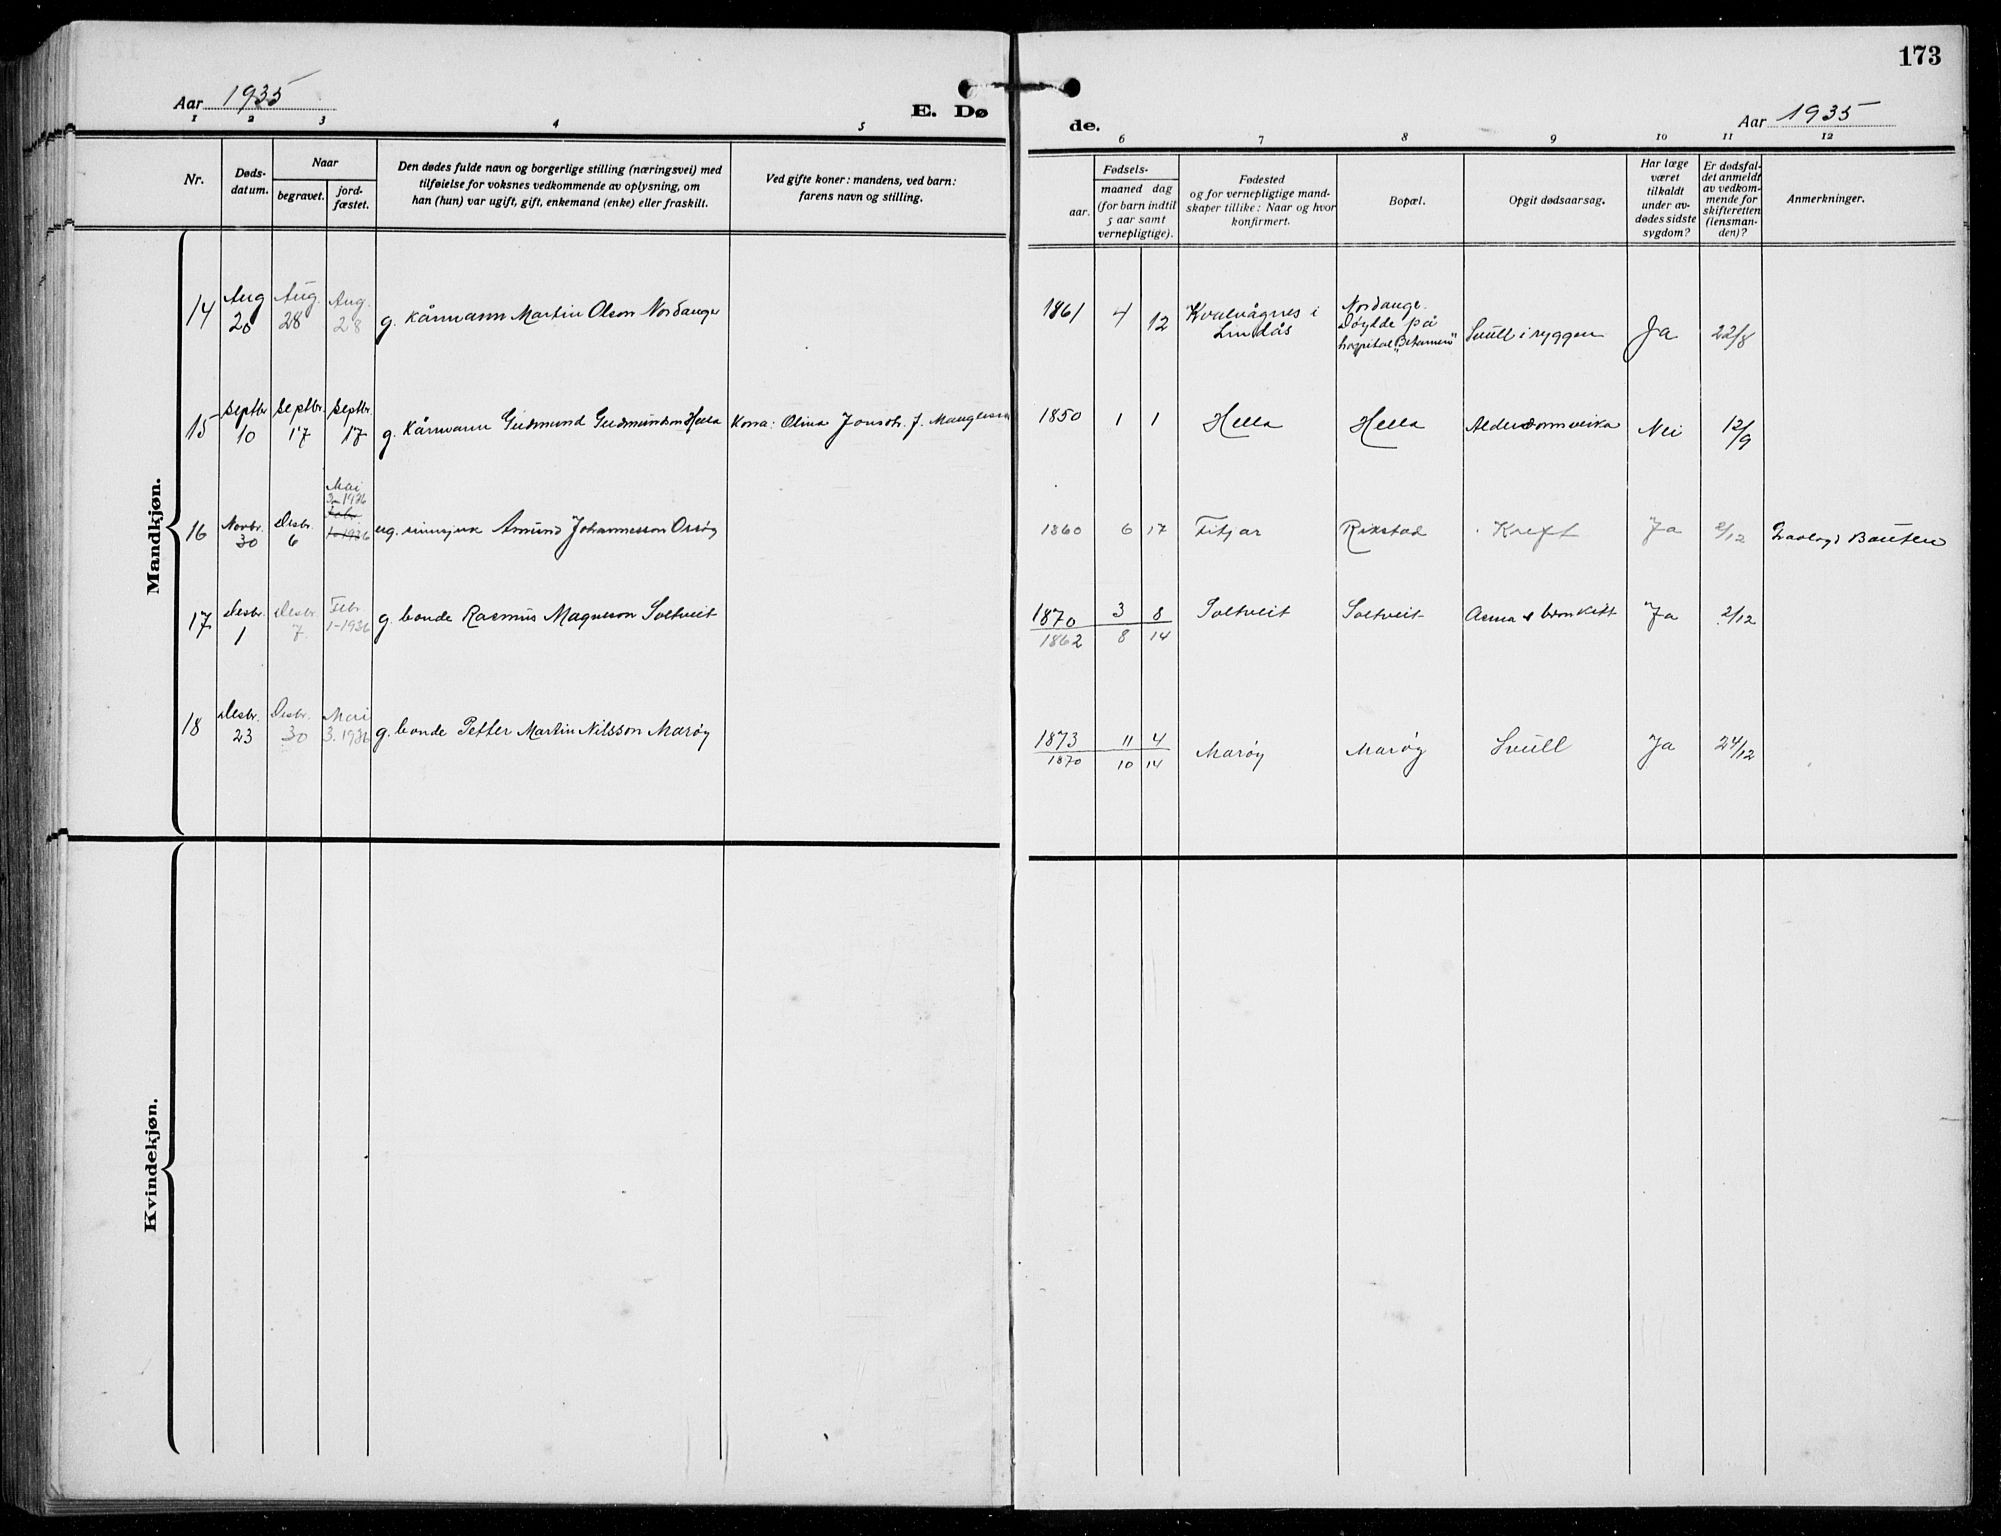 173
Aar 1935
E. Dø
de.
Aar 1935
1 2 3 4 5
6 7 8 9 10 11 12
Nr.
Døds-
datum.
Naar
begravet.
jord-
fæstet.
Den dødes fulde navn og borgerlige stilling (næringsvei) med
tilføielse for voksnes vedkommende av oplysning, om
han (hun) var ugift, gift, enkemand (enke) eller fraskilt.
Ved gifte koner: mandens, ved barn:
farens navn og stilling.
Fødsels-
aar.
maaned dag
(for barn indtil
5 aar samt
vernepligtige).
Fødested
og for vernepligtige mand-
skaper tillike: Naar og hvor
konfirmert.
Bopæl.
Opgit dødsaarsag.
Har læge
været
tilkaldt
under av-
dødes sidste
sygdom?
Er dødsfal-
det anmeldt
av vedkom-
mende for
skifteretten
(lensman-
den)?
Anmerkninger.
Mandkjøn.
14 Aug 20 Aug. 28 Aug. 28 g. Kårmann Martin Olson Nordanger
1861 4 12 Kvalvågnes i
Lindås
Nordange.
Døydde på
hospital
Svull i ryggen Ja 22/8
15 Septbr 10 Septbr. 17 Septbr. 17 g. Kårmann Gudmund Gudmundson Hella Kona: Olina Jonsdtr. f.
1850 1 1 Hella Hella Alderdomsveika Nei 12/9
16 Novbr. 30 Desbr. 6 Mai
3-1936
Febr
1-1936
Amund Johannesson Osrøy
1860 6 17 Fitjar Rixstad Kreft Ja 2/12
17 Desbr. 1 Desbr. 7 Febr
1-1936 g. bonde Rasmus Magneson Soltveit
1870 3 8 Soltveit Soltveit Asma & bronkitt Ja 2/12
1862 8 14
18 Desbr. 23 Desbr. 30 Mai
3. 1936 g. bonde Petter Martin Nilsson Marøy
1873 11 4 Marøy Marøy Svull Ja 24/12
1870 10 14
Kvindekjøn.